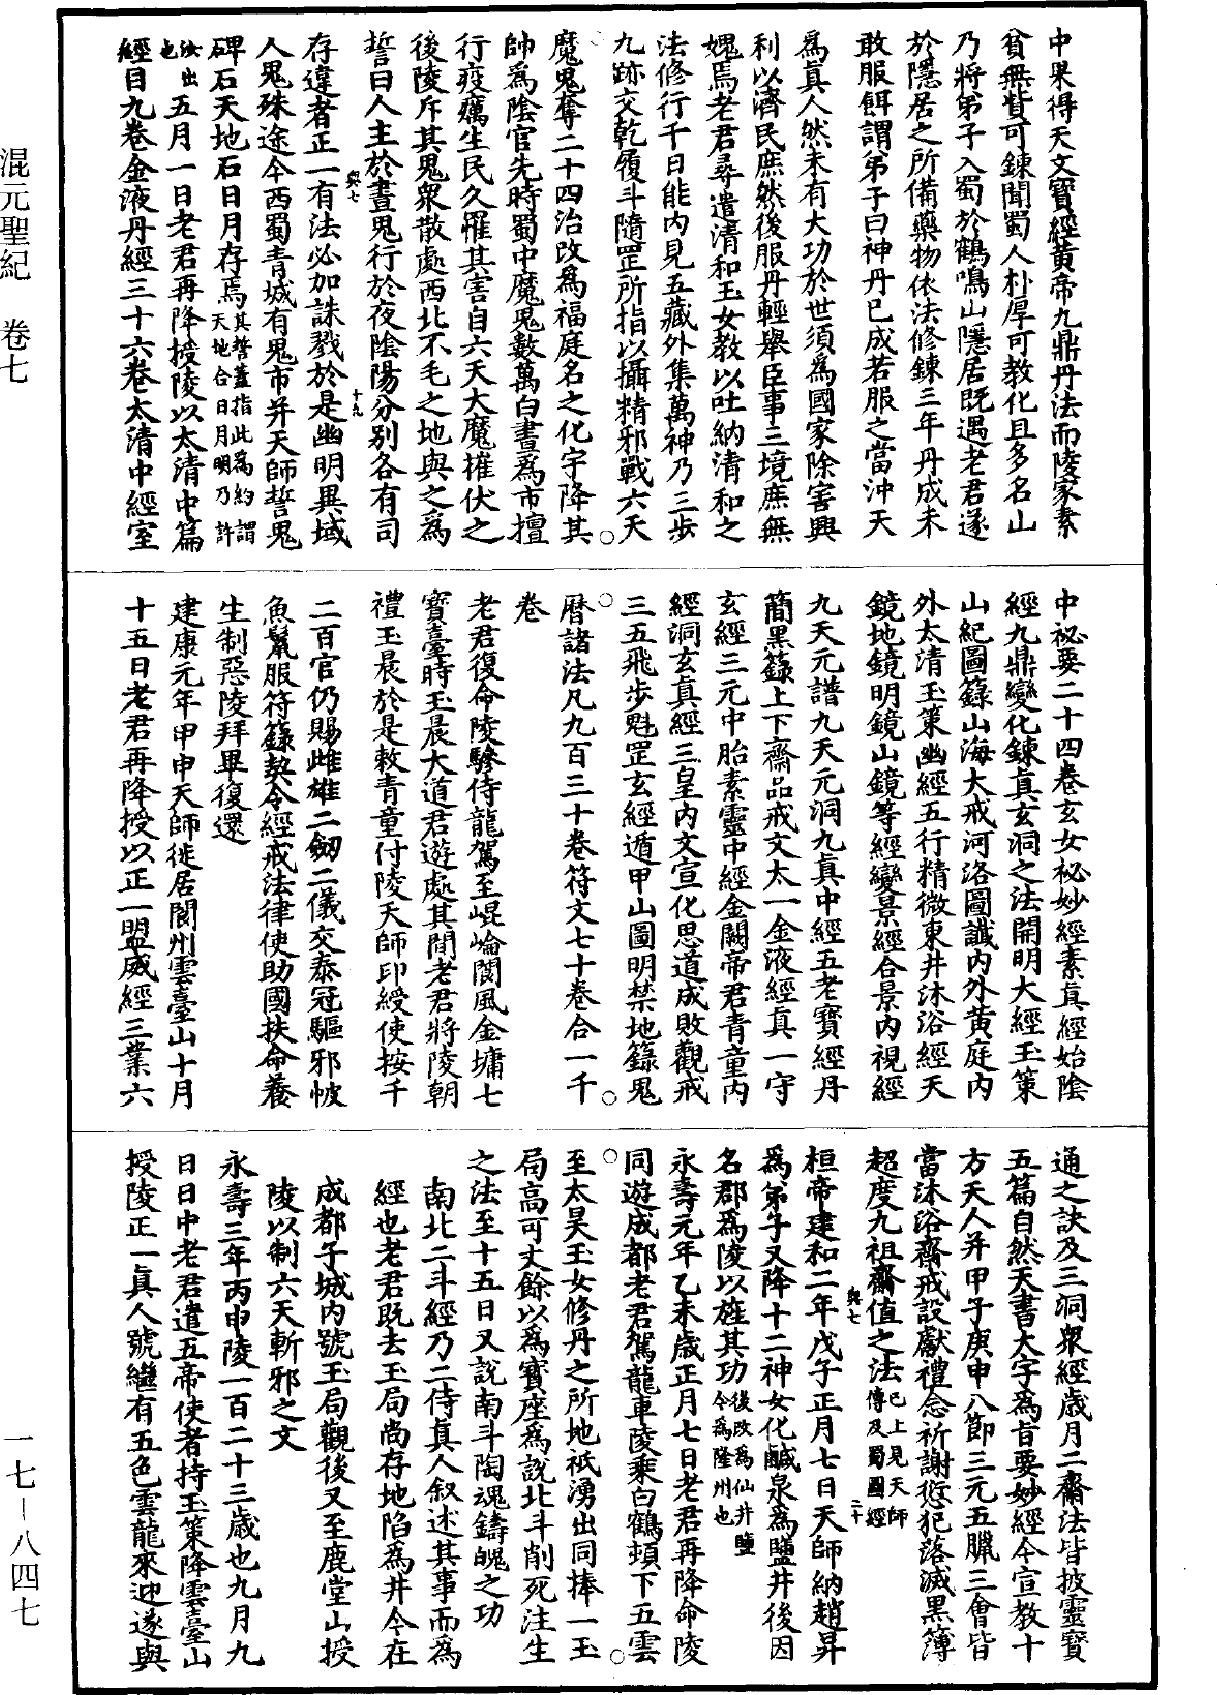 混元聖紀　卷七
一七—八四七
中果得天文寶經黃帝九鼎丹法而陵家素
貧無貲可鍊聞蜀人朴厚可教化且多名山
乃將弟子入蜀於鶴鳴山隱居既遇老君遂
於隱居之所備藥物依法修鍊三年丹成未
敢服餌謂弟子曰神丹已成若服之當沖天
爲眞人然未有大功於世須爲國家除害興
利以濟民庶然後服丹輕舉臣事三境庶無
媿焉老君尋遣清和玉女教以吐納清和之
法修行千日能內見五藏外集萬神乃三步
九跡交乾履斗隨罡所指以攝精邪戰六天
魔鬼奪二十四治改爲福庭名之化宇降其
帥爲陰官先時蜀中魔鬼數萬白晝爲市擅
行疫癘生民久罹其害自六天大魔摧伏之
後陵斥其鬼衆散處西北不毛之地與之爲
誓曰人主於晝鬼行於夜陰陽分別各有司
與七
十九
存違者正一有法必加誅戮於是幽明異域
人鬼殊途今西蜀青城有鬼市并天師誓鬼
碑石天地石日月存焉其誓蓋指此爲約謂天地合日月明乃許
法出也五月一日老君再降授陵以太清中篇
經目九卷金液丹經三十六卷太清中經室
中祕要二十四卷玄女祕妙經素眞經始陰
經九鼎變化鍊眞玄洞之法開明大經玉策
山紀圖籙山海大戒河洛圖讖內外黃庭內
外太清玉策幽經五行精微東井沐浴經天
鏡地鏡明鏡山鏡等經變景經合景內視經
九天元譜九天元洞九眞中經五老寶經丹
簡黑籙上下齋品戒文太一金液經眞一守
玄經三元中胎素靈中經金闕帝君青童內
經洞玄眞經三皇內文宣化思道成敗觀戒
三五飛步魁罡玄經遁甲山圖明禁地籙鬼
曆諸法凡九百三十卷符文七十卷合一千
卷
老君復命陵驂侍龍駕至崐崘閬風金墉七
寶臺時玉晨大道君遊處其間老君將陵朝
禮玉晨於是敕青童付陵天師印綬使按千
二百官仍賜雌雄二劒二儀交泰冠驅邪帔
魚鬣服符籙契令經戒法律使助國扶命養
生制惡陵拜畢復還
建康元年甲申天師徙居閬州雲臺山十月
十五日老君再降授以正一盟威經三業六
通之訣及三洞衆經歲月二齋法皆披靈寶
五篇自然天書大字爲旨要妙經今宣教十
方天人并甲子庚申八節三元五臘三會皆
當沐浴齋戒設獻禮念祈謝愆犯落滅黑簿
超度九祖齋值之法已上見天師傳及蜀國經
與七
二十
桓帝建和二年戊子正月七日天師納趙昇
爲弟子又降十二神女化鹹泉爲鹽井後因
名郡爲陵以旌其功後改爲仙井鹽今爲隆州也
永壽元年乙未歲正月七日老君再降命陵
同遊成都老君駕龍車陵乘白鶴頓下五雲
至太昊玉女修丹之所地祇湧出同捧一玉
局高可丈餘以爲寶座爲說北斗削死注生
之法至十五日又說南斗陶魂鑄魄之功
南北二斗經乃二侍眞人叙述其事而爲
經也老君既去玉局尚存地陷爲井今在
成都子城內號玉局觀後又至鹿堂山授
陵以制六天斬邪之文
永壽三年丙申陵一百二十三歲也九月九
日日中老君遣五帝使者持玉策降雲臺山
授陵正一眞人號繼有五色雲龍來迎遂與